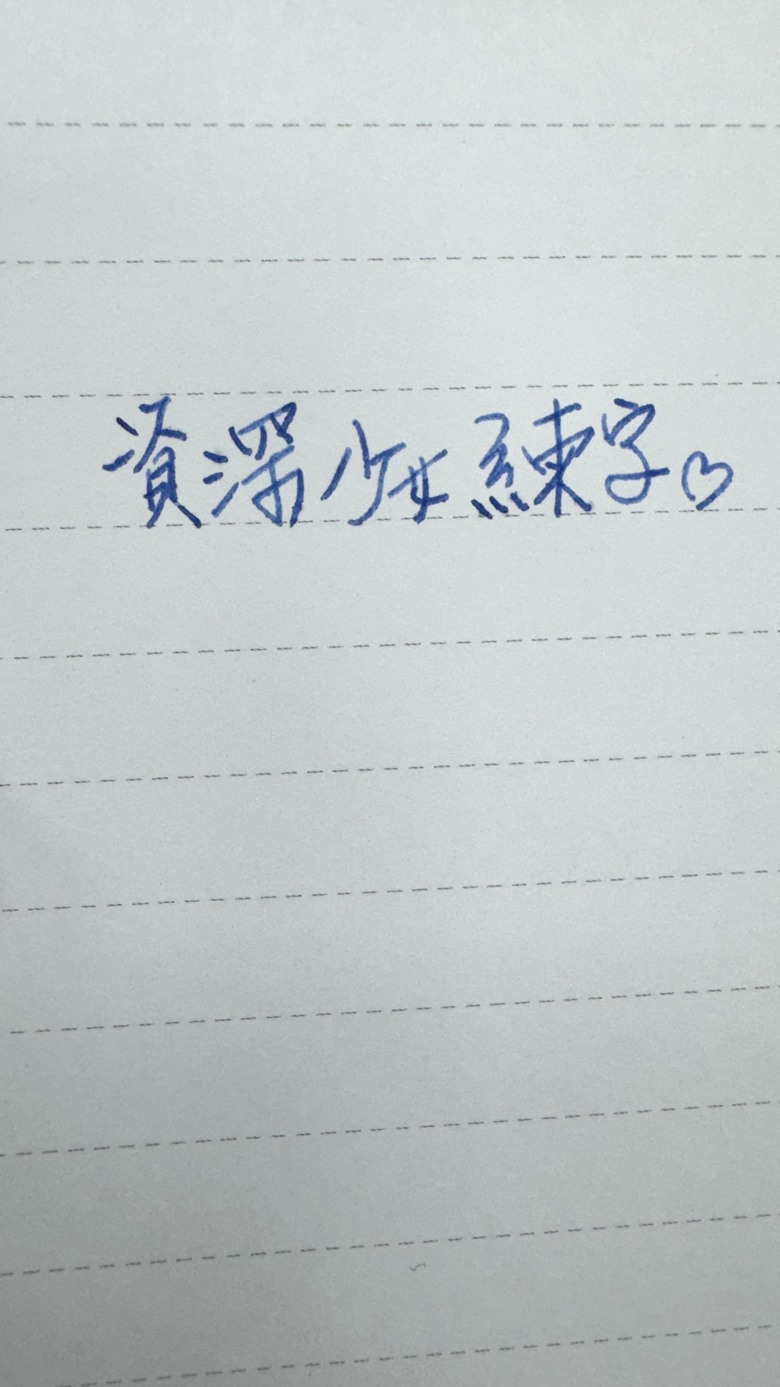 資深少女練字♡